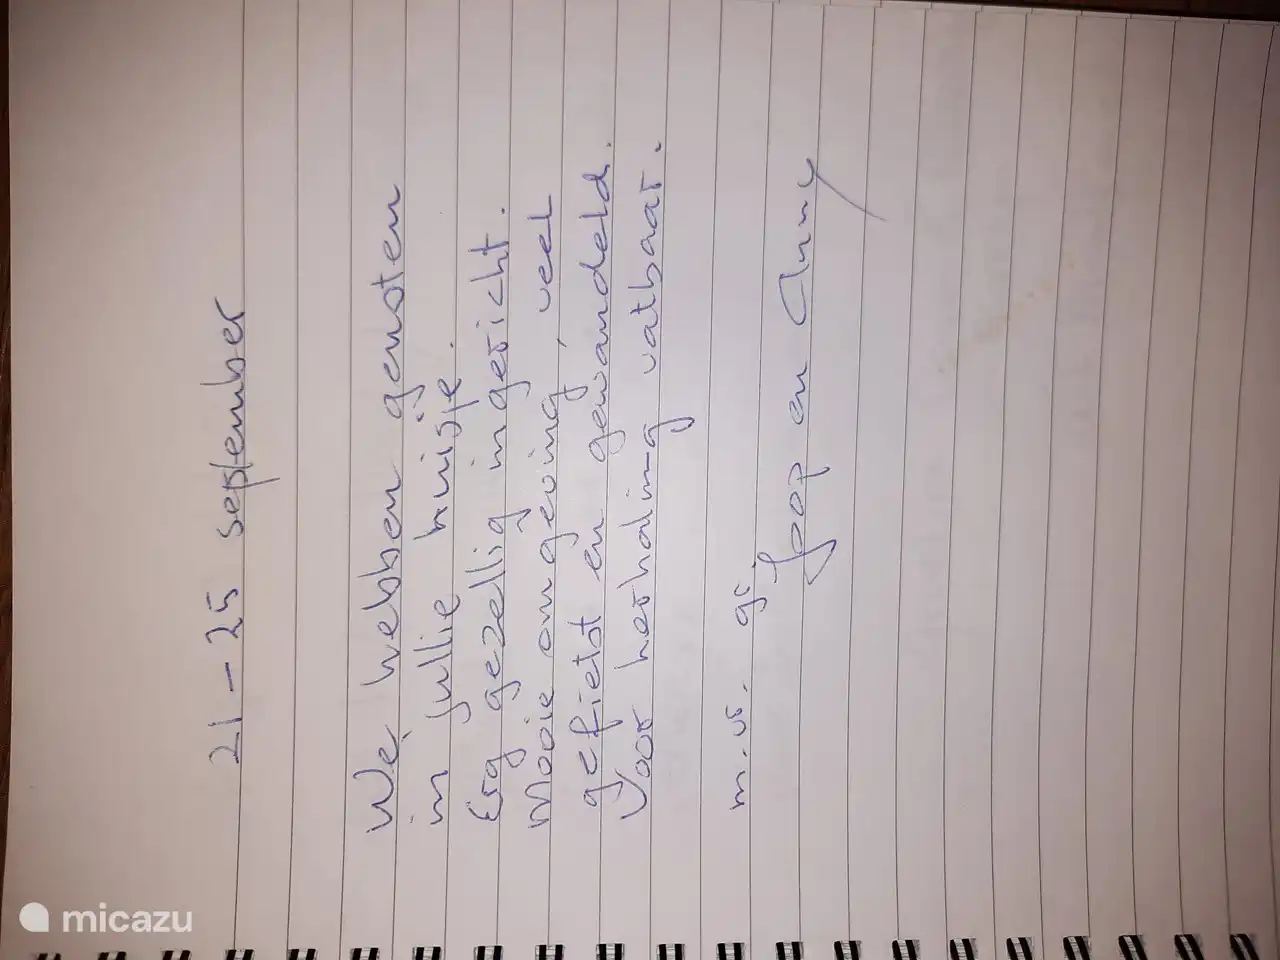 21-25 september
We hebben genoten
in jullie huisje.
Erg gezellig ingericht.
Mooie omgeving, veel
gefietst en gewandeld.
Voor herhaling vatbaar.
m.vr. gr.
Joop en Anny
micazu